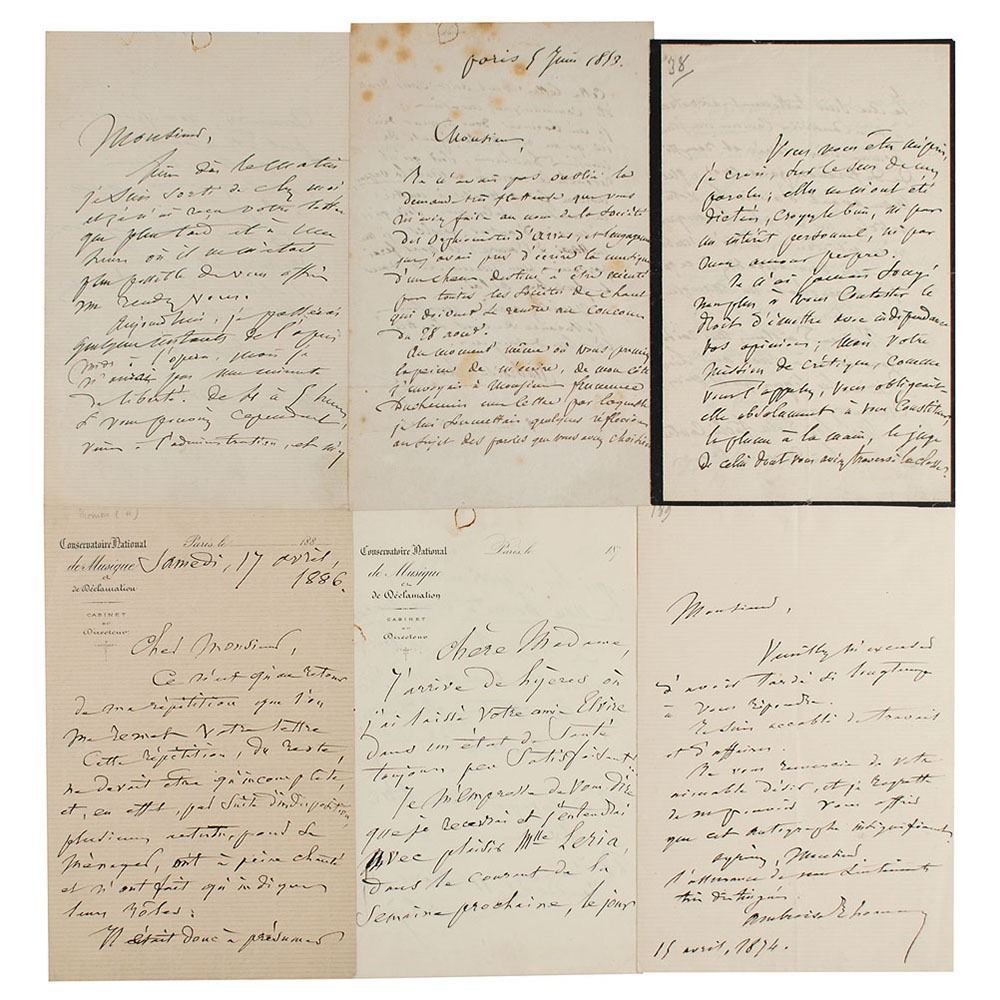 Monsieur,
hier dès le matin
je suis sorti de chez moi
et je n'ai reçu votre lettre
que plus tard et à une
heure où il ne m'était
plus possible de vous offrir
un rendez vous.
Aujourd'hui, je passerai
quelques instants de l'après
midi à l'opéra, mais je
n'aurai pas une minute
de liberté. De 4 à 5 heures,
si vous pouvez cependant,
venir à l'administration, et m'y
Paris 5 Juin
Monsieur,
Je n'avais pas oublié la
demande très flatteuse que vous
m'aviez faite au nom de la Société
des Orphéonistes d'Arras, et l'engagement
que j'avais pris d'écrire la musique
d'un chœur destiné à être exécuté
par toutes les Sociétés de chant
qui doivent se rendre au Concours
du 28 aout.
Au moment même où vous preniez
la peine de m'écrire, de mon côté
j'envoyais à Monsieur
une lettre par laquelle
je lui soumettais quelques réflexions
au sujet des paroles que vous avez choisies
38
Vous vous êtes mépris,
je crois sur le sens de mes
paroles; elles ne m'ont été
dictées, croyez le bien, ni par
un intérêt personnel, ni par
mon amour propre.
Je n'ai jamais songé
non plus à vous contester le
droit d'émettre avec indépendance
vos opinions; mais votre
mission de critique, comme
vous l'appelez, vous obligeait-
elle absolument à vous constituer,
la plume à la main, le juge
de celui dont vous aviez traversé la classe?
Conservatoire National
de Musique
et
de Déclamation
CABINET
DU
Directeur
Paris, le 188
Samedi, 17 avril,
1886.
Cher Monsieur,
Ce n'est qu'au retour
de ma répétition que l'on
me remet votre lettre
Cette répétition, du reste
ne devait être qu'incomplète,
et, en effet, par suite d'indisposition,
plusieurs artistes, pour se
ménager, ont à peine chanté
et n'ont fait qu'indiquer
leurs rôles.
Il était donc à présumer
Conservatoire National
de Musique
et
de Déclamation
CABINET
DU
Directeur
Paris, le 187
Chère Madame,
J'arrive de hyères où
j'ai laissé votre amie Elvire
dans un état de santé
toujours peu satisfaisant.
Je m'empresse de vous dire
que je recevrai et j'entendrai
avec plaisir Mlle Leria,
dans le courant de la
semaine prochaine, le jour
189
Monsieur,
Veuillez m'excuser
d'avoir tardé si longtemps
à vous répondre.
Je suis accablé de travail
et d'affaires.
Je vous remercie de votre
aimable désir, et je regrette
de ne pouvoir vous offrir
que cet autographe insignifiant.
Agréez, Monsieur
l'assurance de mes sentiments
très distingués.
Ambroise Thomas
15 avril, 1874.